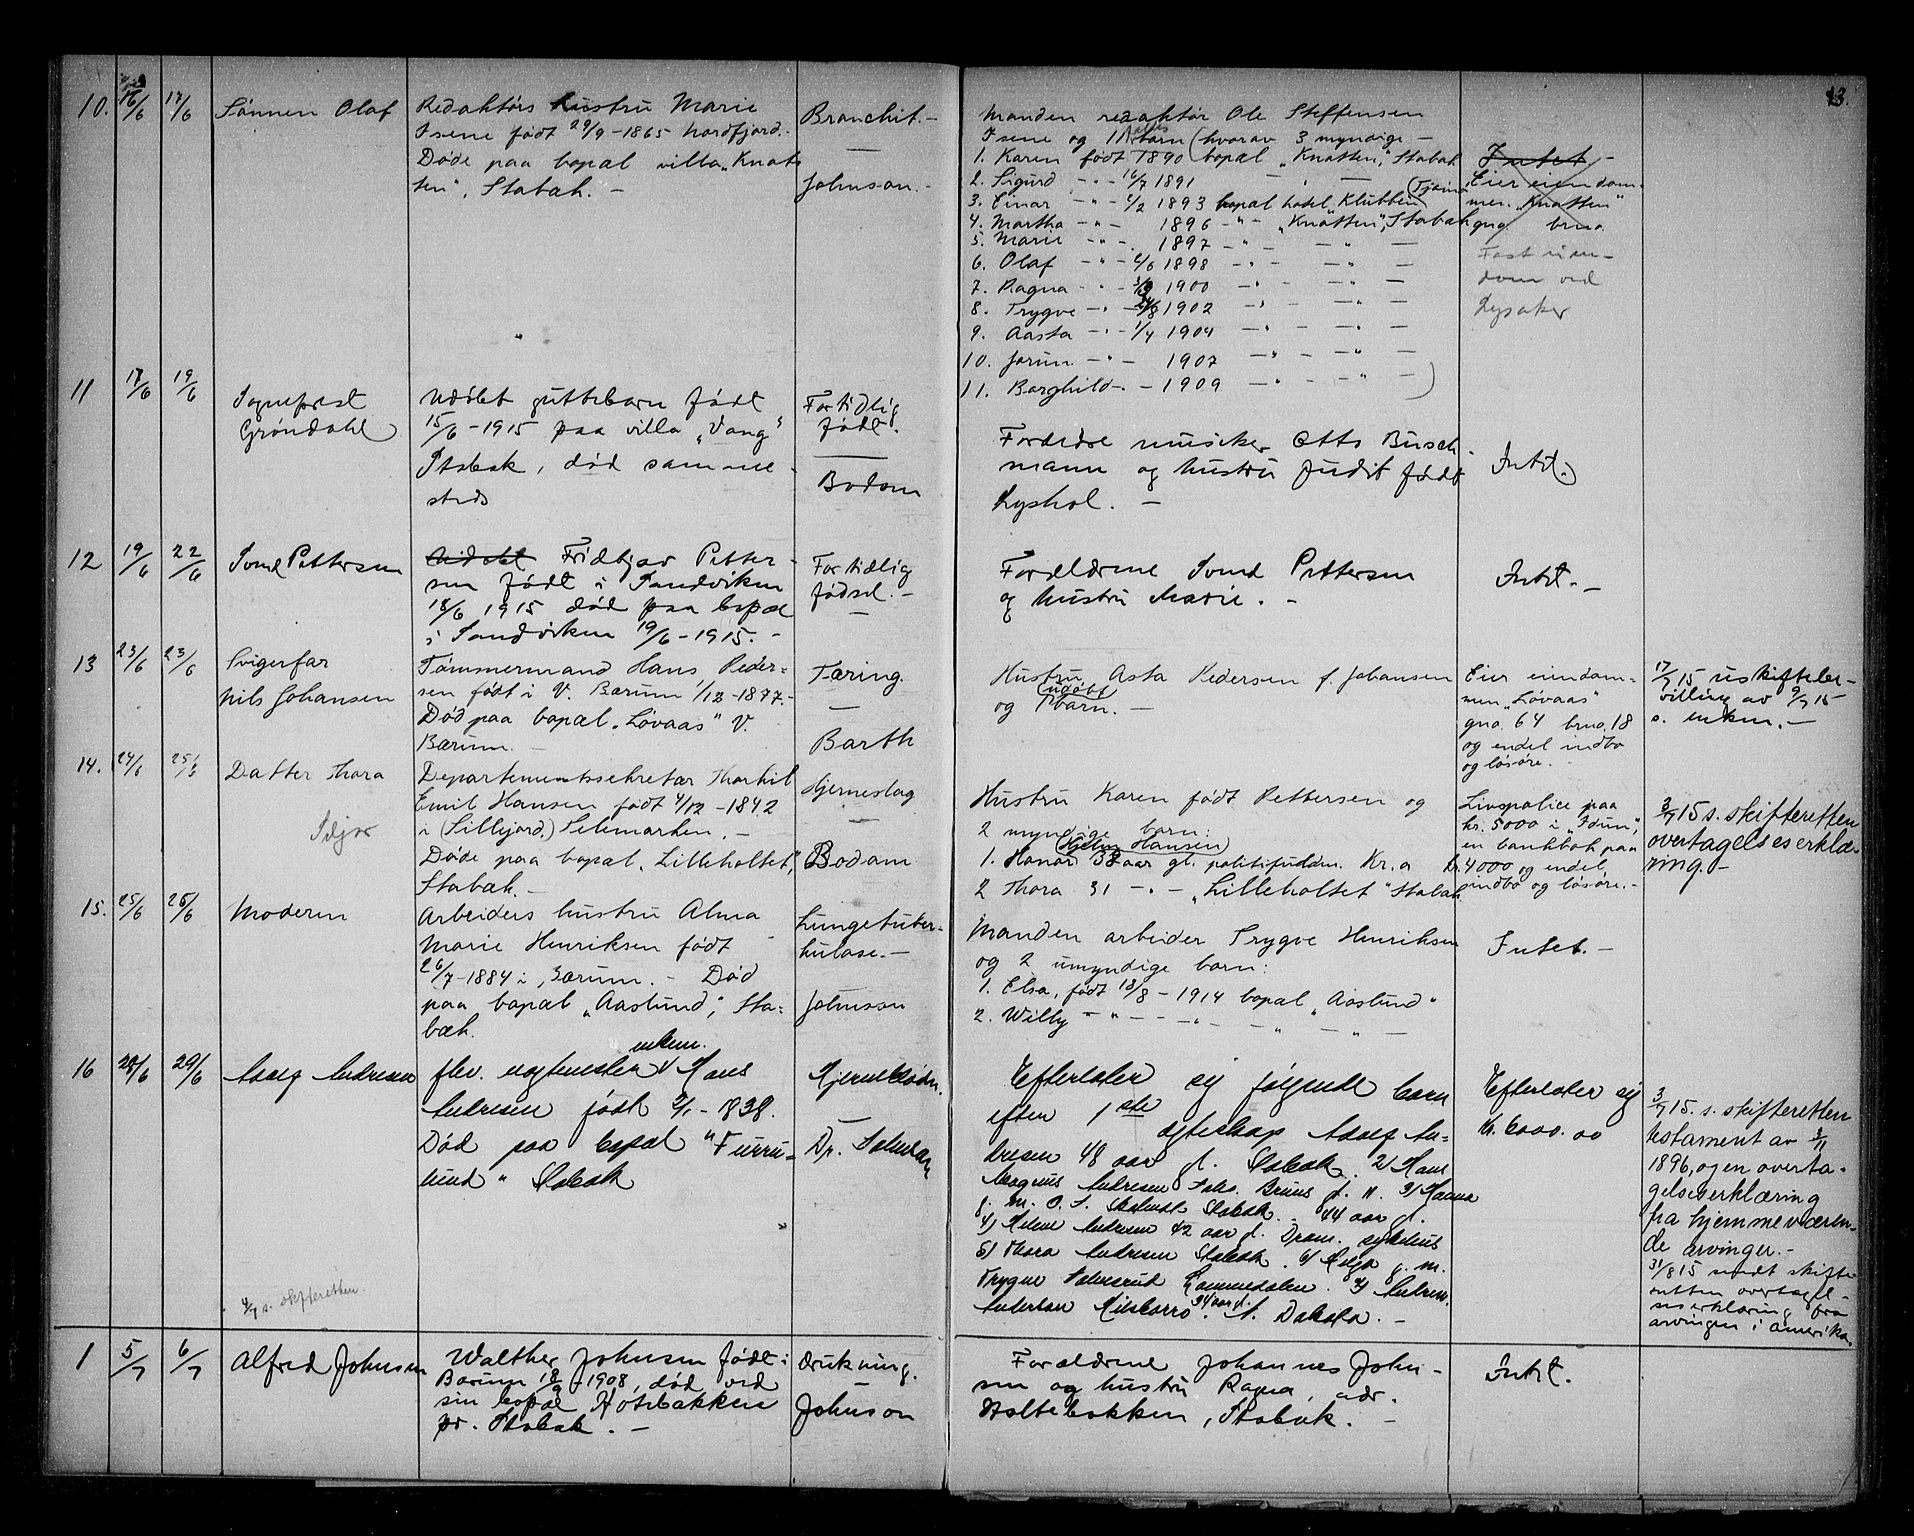 13.
10. 16/6 17/6 Sönnen Olaf
Redaktørs hustru Marie
Isene født 29/9-1865 Nordfjord.
Døde paa bopæl villa „Knat-
ten", Stabæk. -
Bronchit. -
Johnson. -
Manden redaktør Ole Steffensen
Isene og 11 børn (hvorav 3 myndige -
1. Karen født 1890 bopæl „Knatten", Stabæk
2. Sigurd -"- 16/7 1891 - " -
3. Einar -"- 4/2 1893 bopæl hotel Klubben (Tjømø
4. Martha -"- 1896 -"- „Knatten", Stabæk
5. Marie -"- 1897 -"- -"-
6. Olaf -"- 4/6 1898 -"- -"-
7. Ragna -"- 1900 -"- -"-
8. Trygve -"- 1902 -"- -"-
9. Aasta -"- 1/4 1904 -"- -"-
10. Jorun -"- 1907 -"- -"-
11. Borghild -"- 1909 -"- -"- )
Intet -
Eier eiendom-
men „Knatten"
gno. bno.
Fast eien-
dom ved
Lysaker
11 17/6 19/6 Sogneprest
Grøndahl
Udøbt guttebarn født
15/6-1915 paa villa „Vang"
Stabæk, død samme
steds
For tidlig
født.
Bodom
Forældre musiker Otto Busch-
mann og hustru Judit født
Lyshol. -
Intet.
12 19/6 22/6 Svend Pettersen
Udøbt Fridtjov Petter-
sen født i Sandviken
18/6 1915 død paa bopæl
i Sandviken 19/6-1915. -
For tidlig
fødsel. -
Forældrene Svend Pettersen
og hustru Marie. -
Intet. -
13 23/6 23/6 Svigerfar
Nils Johansen
Tømmermand Hans Peder-
sen født i V. Bærum 1/12-1877. -
Død paa bopæl „Løvaas" V.
Bærum. -
Tæring.
Barth
Hustru Asta Pedersen f. Johansen
og 1 udøbt barn. -
Eier eiendom-
men „Løvaas"
gno. 64 bno. 18
og endel indbo
og løsøre. -
17/7 15 uskiftebe-
villing av 9/7 15
s. enken. -
14. 24/6 25/6 Datter Thora
Departementssekretær Thorkil
Emil Hansen født 4/12-1842
i (Sillejord.) Telemarken. -
Seljor
Døde paa bopæl „Lilleholtet",
Stabæk. -
Hjerneslag
Bodom
Hustru Karen født Pettersen og
2 myndige barn:
(Hjelm Hansen)
1. Honor 38 aar gl. politifuldm. Kr.a
2 Thora 31 -"- „Lilleholtet" Stabæk
Livspolice paa
kr. 5000 i „Idun",
en bankbok paa
kr. 4000 og endel
indbo og løsøre. -
3/7 15 s. skifteretten
overtagelseserklæ-
ring. -
15. 25/6 26/6 Moderen
Arbeiders hustru Alma
Marie Henriksen født
26/7-1884 i Bærum. - Død
paa bopæl „Aaslund", Sta-
bæk.
Lungetuber-
kulose. -
Johnson
Manden arbeider Trygve Henriksen
og 2 umyndige barn:
1. Elsa, født 18/8-1914 bopæl „Aaslund"
2. Willy -"- -"- -"- -"-
Intet. -
16 28/6 29/6 Adolf Andresen
enken.
Hans
Andresen født 2/1-1838.
Død paa bopæl "Furru-
lund" Stabæk
Hjerneblødn.
Dr. Johnson
Efterlater sig følgende barn
efter 1ste ægteskap Adolf An-
dresen 48 aar gl. Stabæk. 2) Hans
Magnus Andresen Johs. Bruns gt. 11. 3) Hanna
g. m. O. S. Stabæk. 44 aar gl.
4) Helene Andresen 42 aar gl. Dram. sykehus
5) Thora Andresen Stabæk. 6) Helga g. m.
Trygve 7) Andreas
Andersen 34 aar gl. N. Dakota. -
Efterlater sig
kr. 6000.00
3/7 15. s. skifteretten
testament av 3/11
1896, og en overta-
gelseserklæring
fra hjemmeværen-
de arvinger. -
31/8 15 sendt skifte-
retten overtagel-
seserklæring fra
arvingen i Amerika.
4/7 s. skifteretten.
1 5/7 6/7 Alfred Johnsen
Walther Johnsen født i
Bærum 18/9-1908, død ved
sin bopæl Holtebakken
pr. Stabæk. -
Drukning.
Johnson
Forældrene Johannes John-
sen og hustru Ragna, adr.
Holtebakken, Stabæk. -
Intet.